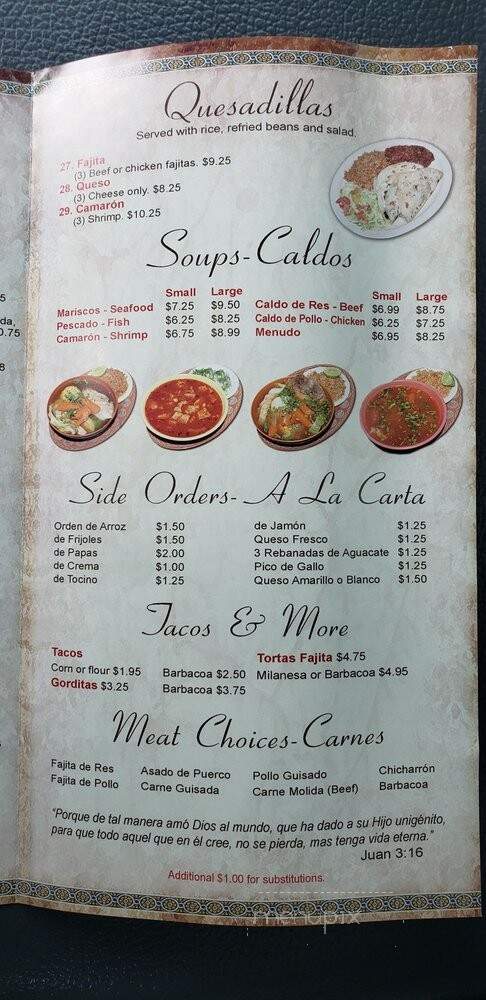 Quesadillas
Served with rice, refried beans and salad.
27. Fajita
(3) Beef or chicken fajitas. $9.25
28. Queso
(3) Cheese only. $8.25
29. Camarón
(3) Shrimp. $10.25
Soups-Caldos
Small Large
Mariscos - Seafood $7.25 $9.50
Pescado - Fish $6.25 $8.25
Camarón - Shrimp $6.75 $8.99
Small Large
Caldo de Res - Beef $6.99 $8.75
Caldo de Pollo - Chicken $6.25 $7.25
Menudo $6.95 $8.25
Side Orders- A La Carta
Orden de Arroz $1.50
de Frijoles $1.50
de Papas $2.00
de Crema $1.00
de Tocino $1.25
de Jamón $1.25
Queso Fresco $1.25
3 Rebanadas de Aguacate $1.25
Pico de Gallo $1.25
Queso Amarillo o Blanco $1.50
Tacos & More
Tacos
Corn or flour $1.95 Barbacoa $2.50
Gorditas $3.25 Barbacoa $3.75
Tortas Fajita $4.75
Milanesa or Barbacoa $4.95
Meat Choices-Carnes
Fajita de Res Asado de Puerco Pollo Guisado Chicharrón
Fajita de Pollo Carne Guisada Carne Molida (Beef) Barbacoa
"Porque de tal manera amó Dios al mundo, que ha dado a su Hijo unigénito,
para que todo aquel que en él cree, no se pierda, mas tenga vida eterna."
Juan 3:16
Additional $1.00 for substitutions.
menupix